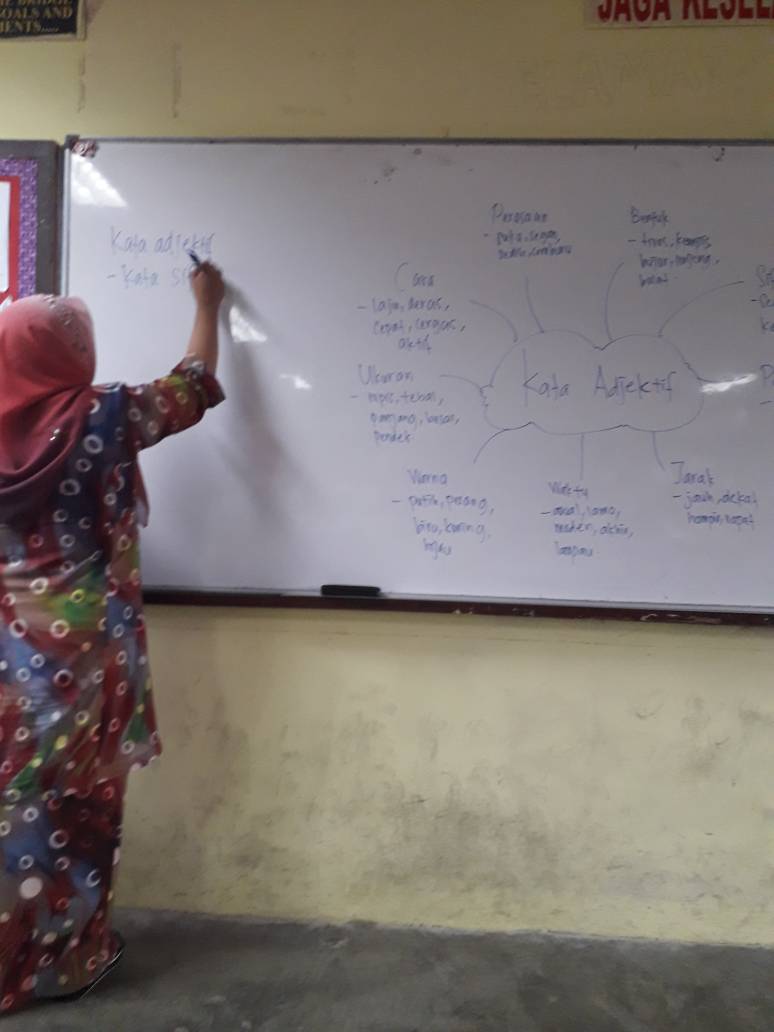 GOALS AND
JAGA
Kata adjektif
- Kata
Perasaan
- rindu, segan,
cemburu
Bentuk
- tirus, kempis,
bujur, lonjong,
bulat
Cara
- laju, deras,
cepat, cergas,
aktif
Ukuran
- nipis, tebal,
panjang, besar,
pendek
Kata Adjektif
Warna
- putih, perang,
biru, kuning,
hijau
Waktu
- awal, lama,
moden, akhir,
lampau
Jarak
- jauh, dekat
hampir, rapat